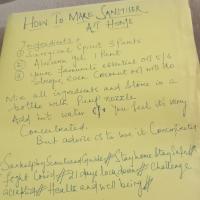 How To Make Sanitiser
At Home
Ingredients :
① Surgical Spirit 3 Parts
② Aloevera gel 1 Part
③ your favourite essential oil 5/6
drops even Coconut oil will do
Mix all ingredients and store in a
bottle with Pump nozzle
Add hot water if you feel its very
Concentrated.
But advice is to use it Concentrated
#Stay home Stay Safe#
fight Covid# 21 days lockdown# Challenge
accepted# Health and well being#